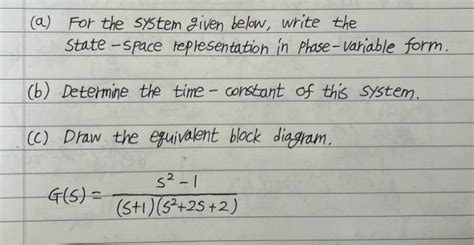 (a) For the system given below, write the
state-space representation in phase-variable form.
(b) Determine the time-constant of this system.
(c) Draw the equivalent block diagram.
G(s) = (s²-1) / ((s+1)(s²+2s+2))